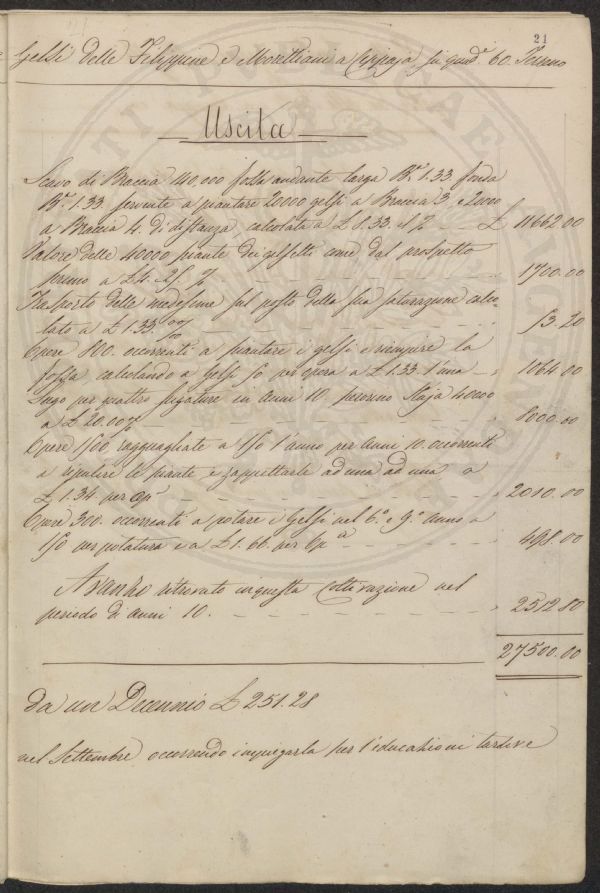 21
Gelsi delle Filippine e Morettiani a Ceppaja in quad.e 60. Terreno
Uscita
Scavo di Braccia 140,000 fossa andante larga B.a 1.33. fonda
B.a 1.33. servente a piantare 20000 gelsi a Braccia 3. e 20000
a Braccia 4. di distanza, calcolata a £ 8.33. il % £ 11662.00
Valore delle 40000 piante dei gelsetti come dal prospetto
primo a £ 4. 25 % 1700.00
Trasporto delle medesime sul posto della sua calco-
lato a £ 1.33. 53.20
Opere 800. occorrenti a piantare i gelsi e riempire la
fossa calcolando a Gelsi 50 per opera a £ 1.33. l'una 1064.00
Sugo per quattro in anni 10. Staja 40000
a £ 20.00 % 8000.00
Opere 1500. ragguagliate a 150 l'anno per anni 10. occorrenti
a ripulire le piante e zappettarle ad una ad una a
£ 1.34 per Op.a 2010.00
Opere 300. occorrenti a potare i Gelsi nel 6.o e 9.o anno a
150 per potatura e a £ 1.66. per Op.a 498.00
Avanzo ritrovato in questa Coltivazione nel
periodo di anni 10. 2512 80
27500.00
da un Decennio £ 251.28
nel Settembre occorrendo impiegarla per l'educazioni tardive